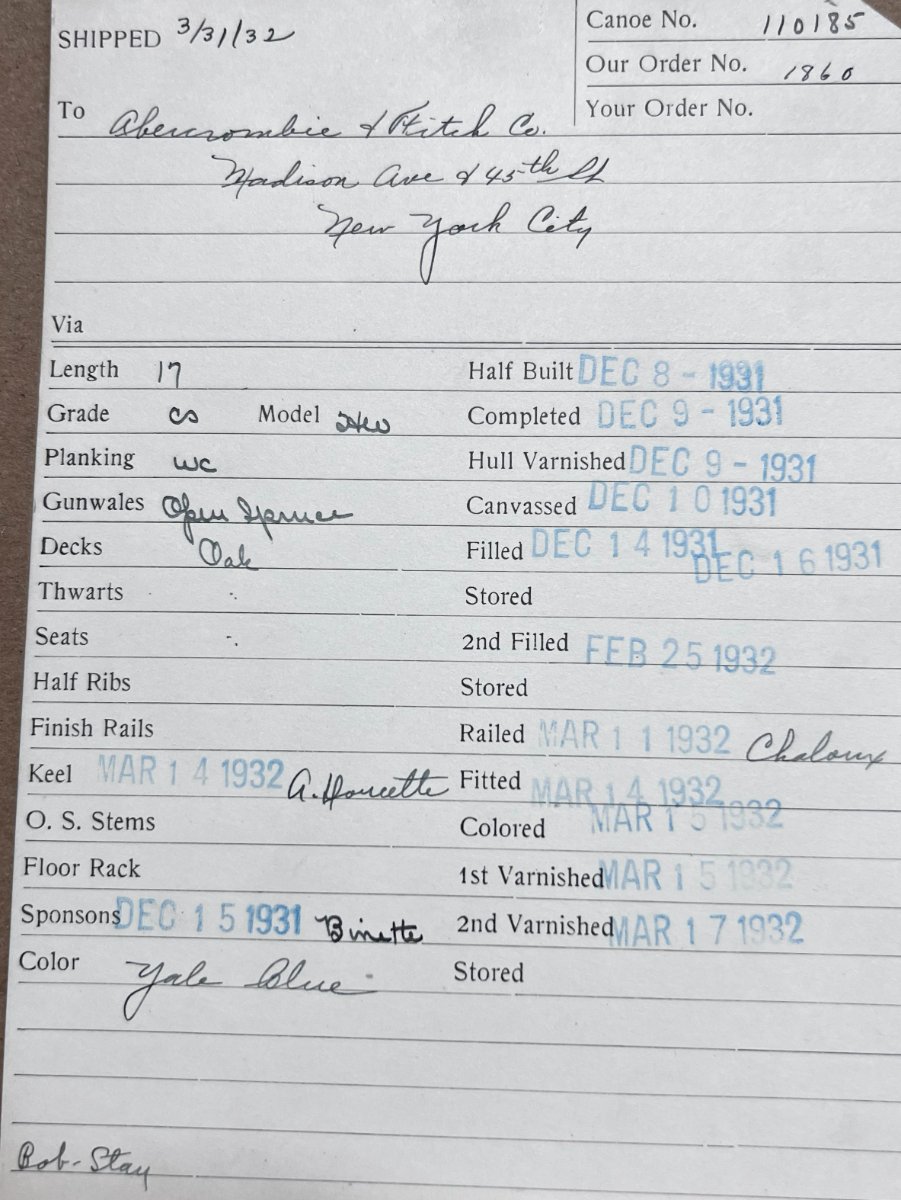 SHIPPED 3/31/32
Canoe No. 110185
Our Order No. 1860
Your Order No.
To Abercrombie & Fitch Co.
Madison Ave & 45th St
New York City
Via
Length 17 Half Built DEC 8 - 1931
Grade CS Model HW Completed DEC 9 - 1931
Planking WC Hull Varnished DEC 9 - 1931
Gunwales Open Spruce Canvassed DEC 10 1931
Decks Oak Filled DEC 14 1931 DEC 16 1931
Thwarts " Stored
Seats " 2nd Filled FEB 25 1932
Half Ribs Stored
Finish Rails Railed MAR 11 1932 Chaloux
Keel MAR 14 1932 A. Doucette Fitted MAR 14 1932
O. S. Stems Colored MAR 15 1932
Floor Rack 1st Varnished MAR 15 1932
Sponsons DEC 15 1931 Binette 2nd Varnished MAR 17 1932
Color Yale Blue Stored
Bob-Stay